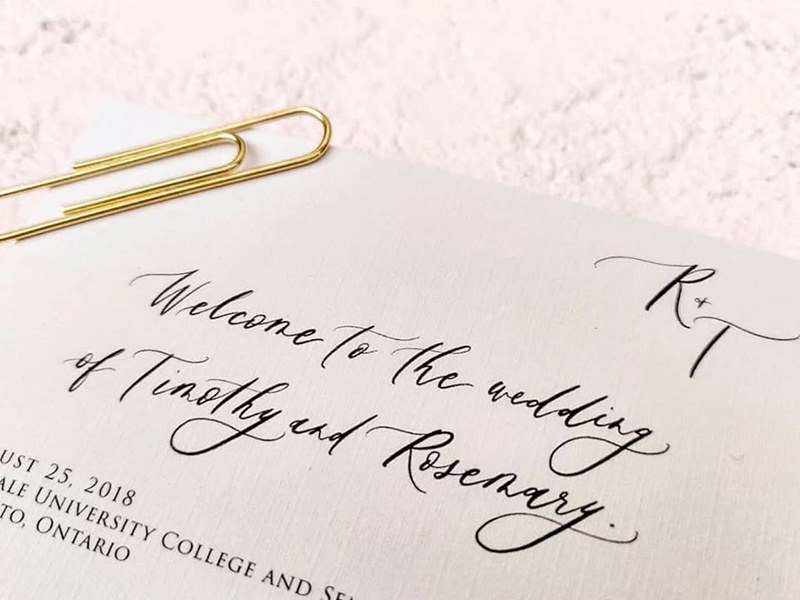 R+T
Welcome to the wedding
of Timothy and Rosemary.
UST 25, 2018
ALE UNIVERSITY COLLEGE AND SE
TO, ONTARIO